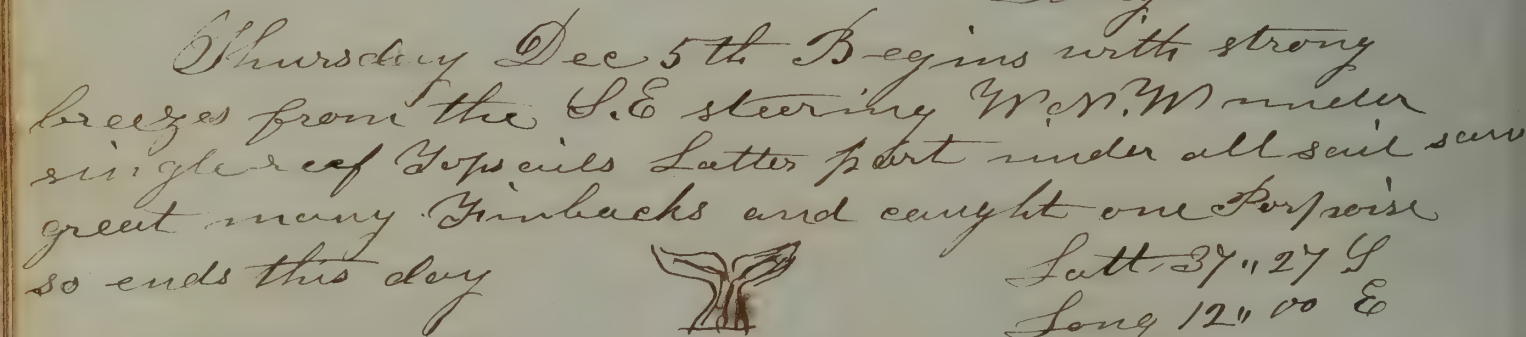 Thursday Dec 5th Begins with strong
breezes from the S.E steering W.N.W under
single reef Topsails Latter part under all sail saw
great many Finbacks and caught one Porpoise
so ends this day
Latt 37,, 27 S
Long 12,, 00 E